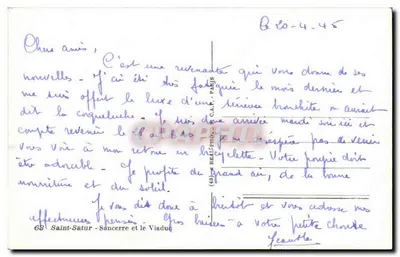 Le 20-4-45
Chers amis,
C'est une revenante qui vous donne de ses
nouvelles - J'ai été très fatiguée le mois dernier et
me suis offert le luxe d'une bronchite on aurait
dit la coqueluche. Je suis donc arrivée mardi ici et
compte revenir le
vous voir à mon retour en bicyclette - Votre poupée doit
être adorable - Je profite du grand air, de la bonne
nourriture et du soleil.
Je vous dis donc à bientôt et vous adresse mes
affectueuses pensées. Gros baisers à votre petite choute
65 Saint-Satur - Sancerre et le Viaduc
C.A.P. - PARIS